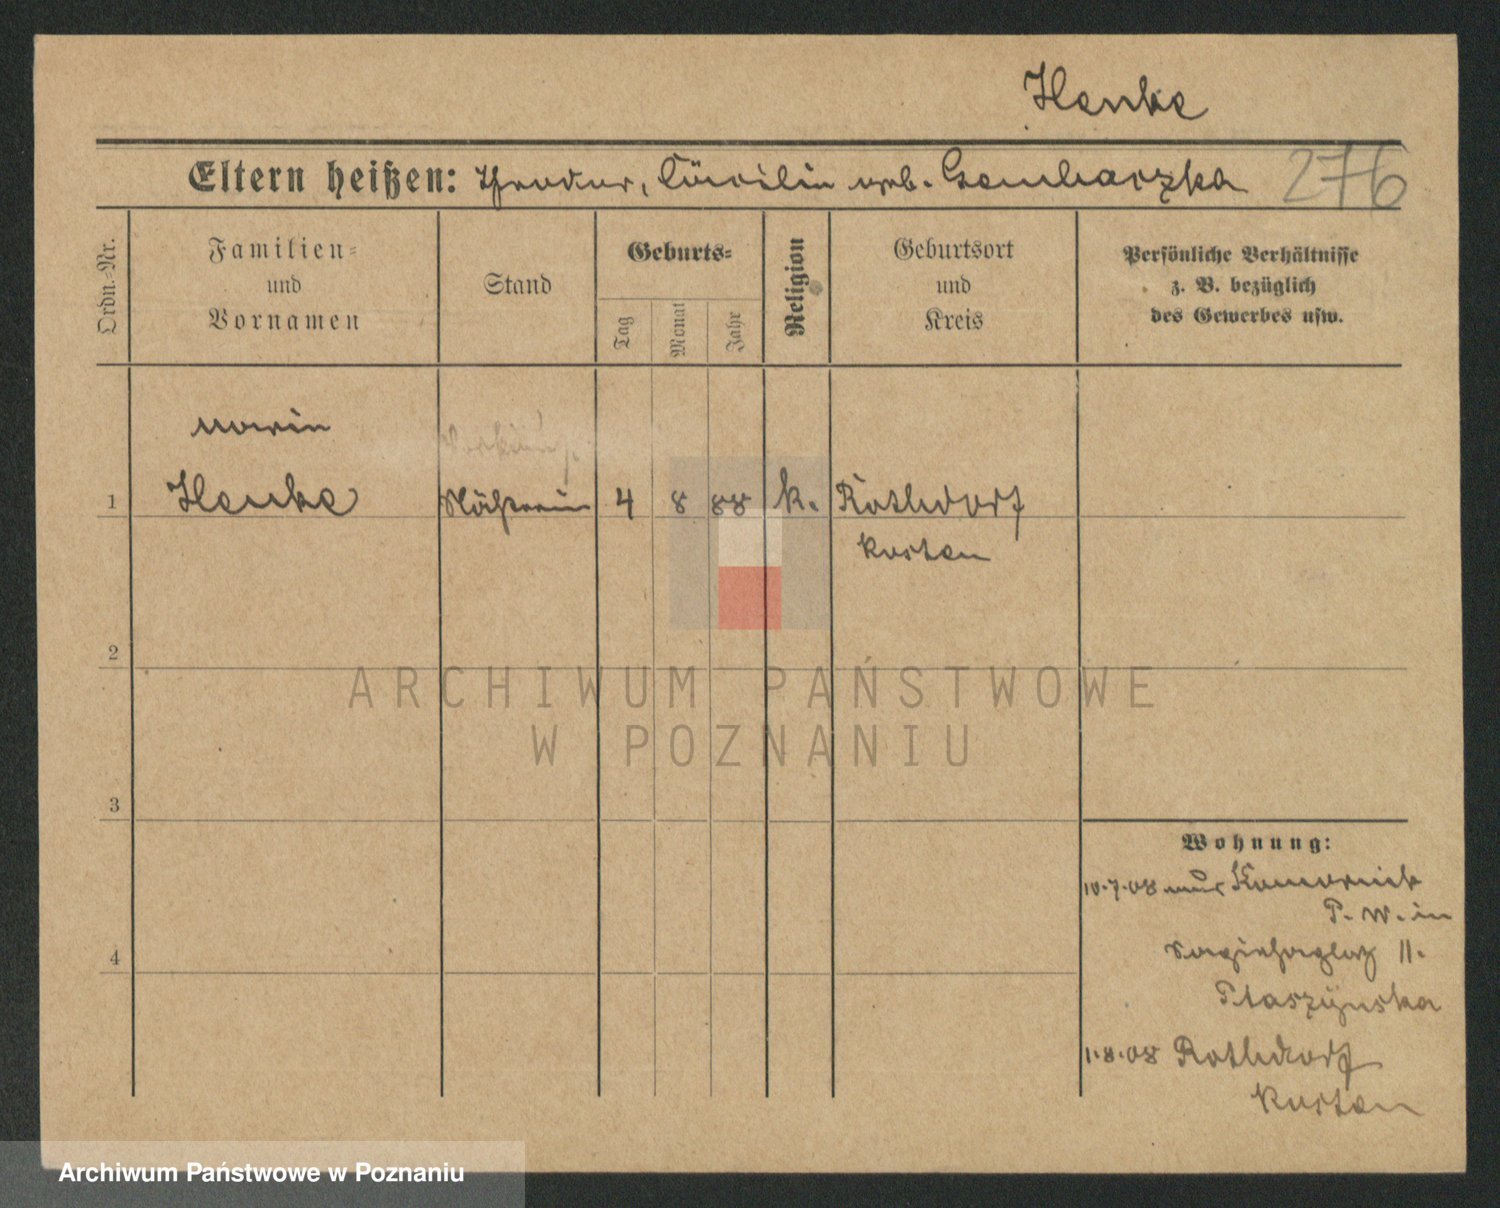 Henke
Eltern heißen: Theodor, Cäcilie geb. Gembarzka 276
Ordn.-Nr.
Familien-
und
Vornamen
Stand
Geburts-
Tag
Monat
Jahr
Religion
Geburtsort
und
Kreis
Persönliche Verhältnisse
z. B. bezüglich
des Gewerbes usw.
Maria
1 Henke Nähterin 4 8 88 k. Rothdorf
Kosten
2
ARCHIWUM PAŃSTWOWE
W POZNANIU
3
Wohnung:
10.7.08 aus Komornik
P. W. in
Sapiehaplatz 11.
4
Ptaszynska
1.8.08 Rothdorf
Kosten
Archiwum Państwowe w Poznaniu